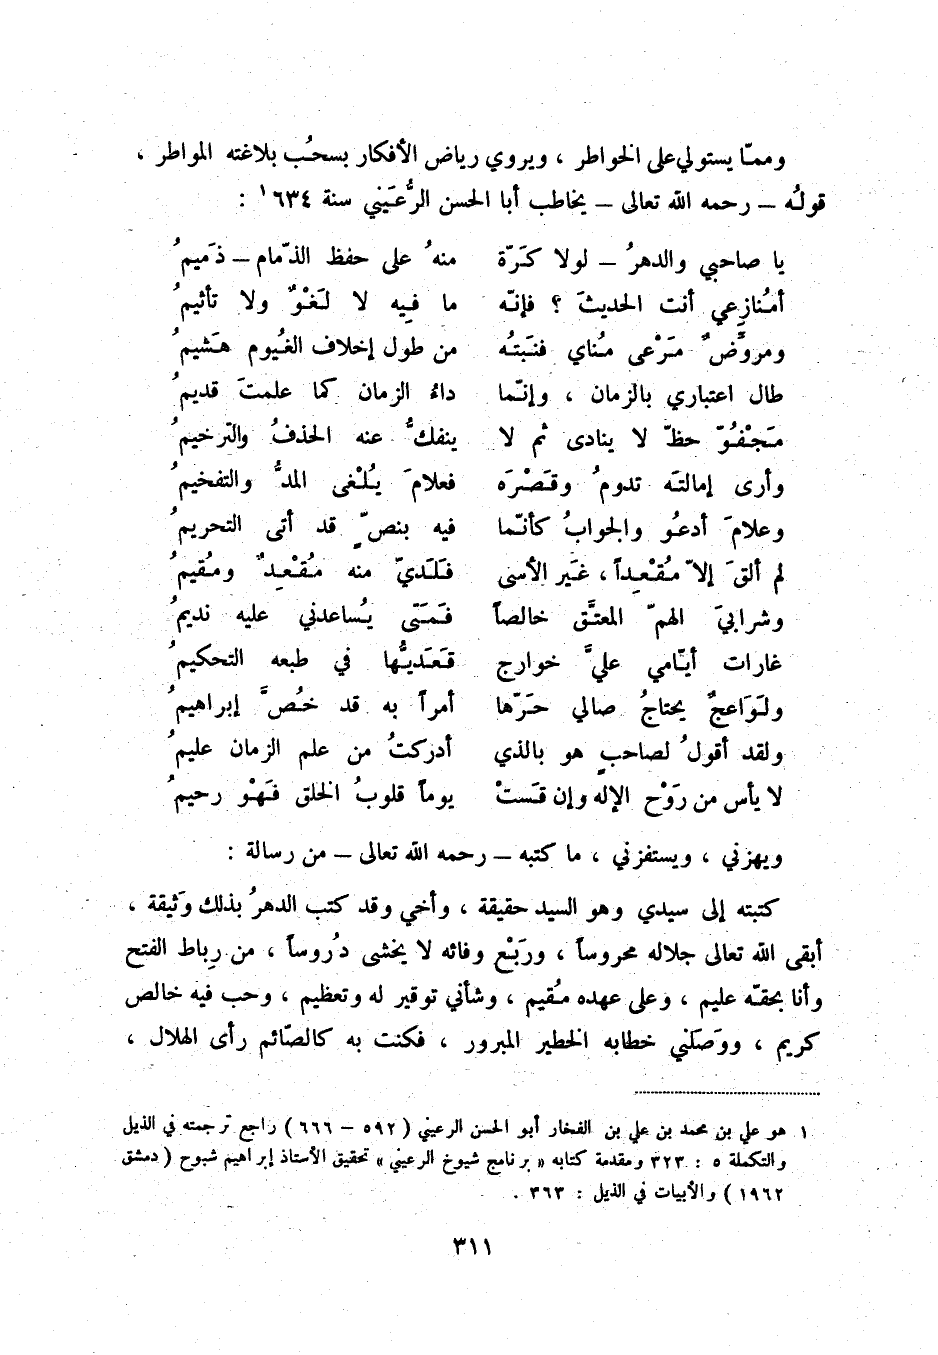 وممّا يستولي على الخواطر ، ويروي رياض الأفكار بسحُب بلاغته المواطر ،
قولُه – رحمه الله تعالى – يخاطب أبا الحسن الرُّعَيني سنة ٦٣٤ ١ :
يا صاحبي والدهرُ – لولا كَرّة منهُ على حفظ الذّمام – ذَميمُ
أمُنازِعي أنت الحديثَ ؟ فإنّه ما فيه لا لَغْوٌ ولا تأثيمُ
ومروَّضٌ مَرْعى مُناي فنَبتُه من طول إخلاف الغُيوم هَشيمُ
طال اعتباري بالزمان ، وإنّما داءُ الزمان كما علمتَ قديمُ
مَجْفُوّ حظّ لا ينادى ثم لا ينفكُّ عنه الحذفُ والتّرخيمُ
وأرى إمالتَه تدومُ وقَصْرَه فعلامَ يُلْغى المدُّ والتفخيمُ
وعلامَ أدعُو والجوابُ كأنّما فيه بنصٍّ قد أتى التحريمُ
لم ألقَ إلاّ مُقْعِداً ، غَير الأسى فَلَديّ منه مُقْعِدٌ ومُقيمُ
وشرابيَ الهمّ المعتَّق خالصاً فَمَتى يُساعدني عليه نديمُ
غارات أيّامي عليَّ خوارج قَعَديُّها في طبعه التحكيمُ
ولَوَاعجٌ يحتاجُ صالي حَرّها أمراً به قد خُصَّ إبراهيمُ
ولقد أقولُ لصاحبٍ هو بالذي أدركتُ من علم الزمان عليمُ
لا يأس من رَوْح الإله وإن قَستْ يوماً قلوبُ الخلق فَهْو رحيمُ
ويهزني ، ويستفزني ، ما كتبه – رحمه الله تعالى – من رسالة :
كتبته إلى سيدي وهو السيد حقيقة ، وأخي وقد كتب الدهرُ بذلك وَثيقة ،
أبقى الله تعالى جلاله محروساً ، ورَبْع وفائه لا يخشى دُروساً ، من رِباط الفتح
وأنا بحقّه عليم ، وعلى عهده مُقيم ، وشأني توقير له وتعظيم ، وحب فيه خالص
كريم ، ووَصَلني خطابه الخطير المبرور ، فكنت به كالصّائم رأى الهلال ،
١ هو علي بن محمد بن علي بن الفخار أبو الحسن الرعيني ( ٥٩٢ – ٦٦٦ ) راجع ترجمته في الذيل
والتكملة ٥ : ٣٢٣ ومقدمة كتابه « برنامج شيوخ الرعيني » تحقيق الأستاذ إبراهيم شبوح ( دمشق
١٩٦٢ ) والأبيات في الذيل : ٣٦٣ .
٣١١